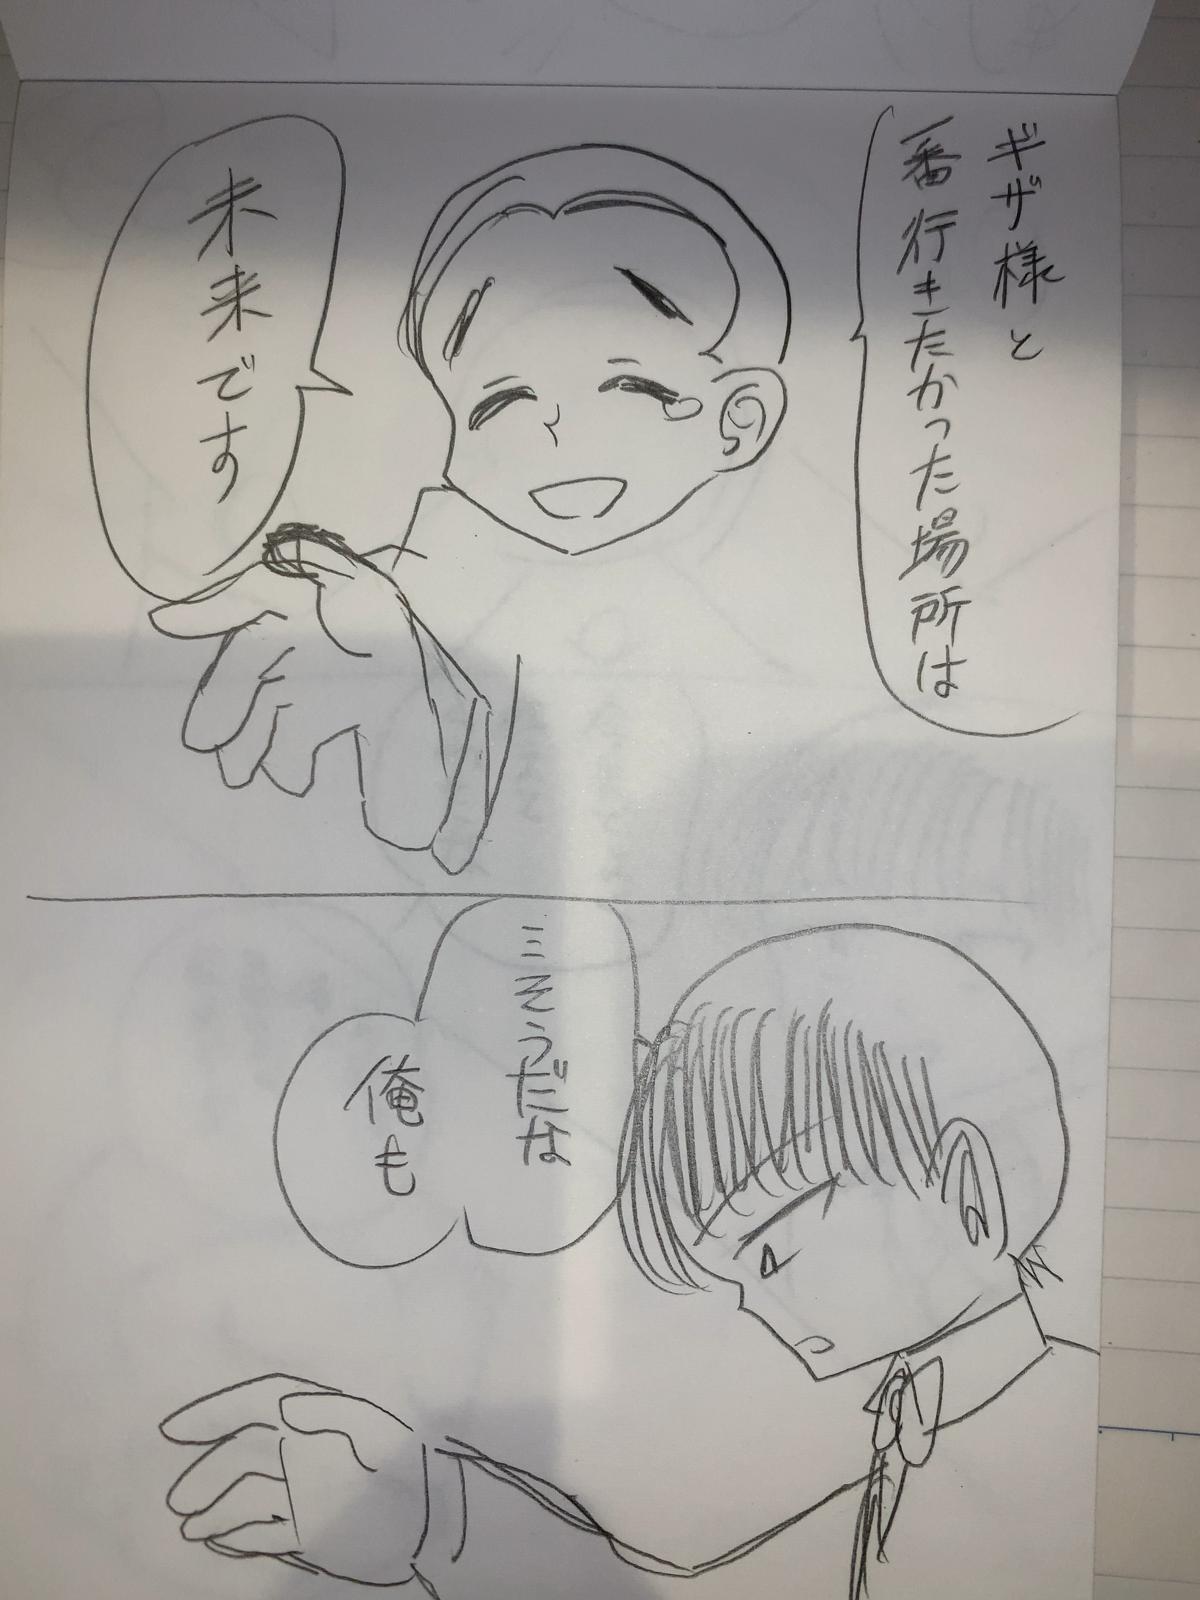 ギザ様と
一番行きたかった場所は
未来です
…そうだな
俺も